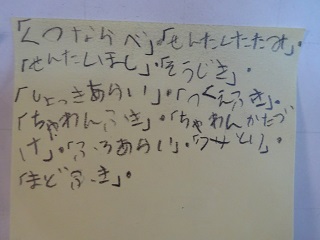 「くつならべ」・「せんたくたたみ」・
「せんたくほし」・「そうじき」・
「しょっきあらい」・「つくえふき」・
「ちゃわんふき」・「ちゃわんかたづ
け」・「ふろあらい」・「ゴミとり」・
「まどふき」・